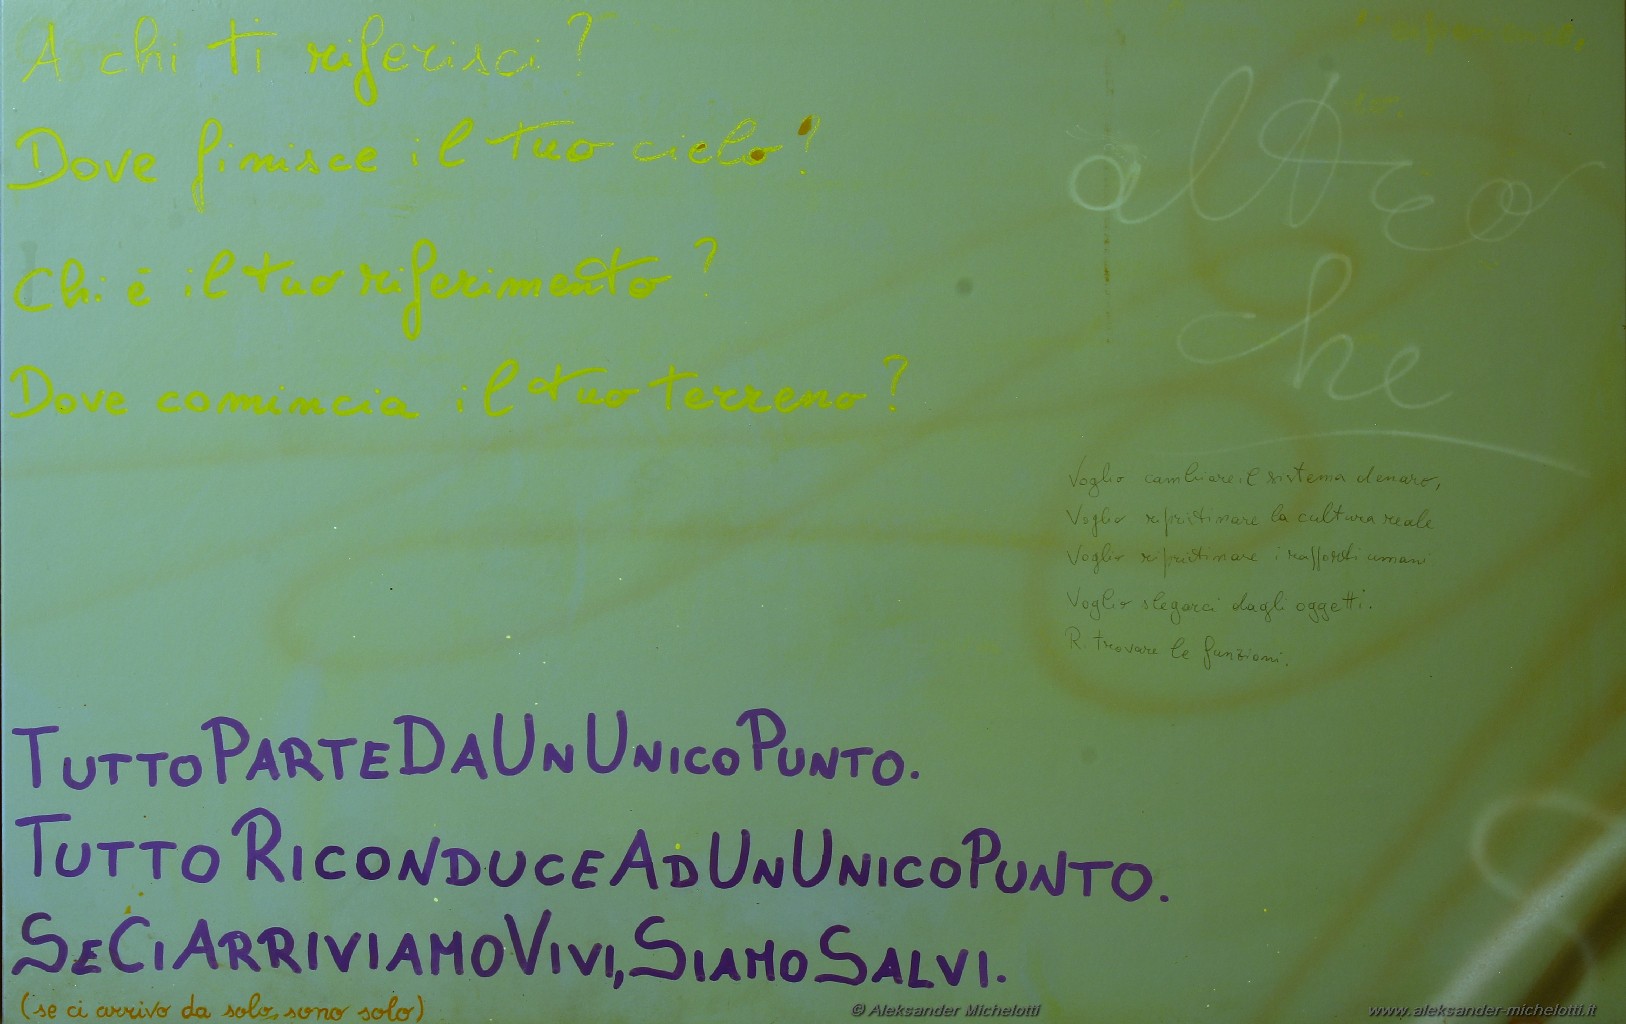 A chi ti riferisci?
Dove finisce il tuo cielo?
Chi è il tuo riferimento?
Dove comincia il tuo terreno?
altro
che
Voglio cambiare il sistema denaro,
Voglio ripristinare la cultura reale
Voglio ripristinare i rapporti umani
Voglio slegarci dagli oggetti.
R. trovare le funzioni.
TUTTO PARTE DA UN UNICO PUNTO.
TUTTO RICONDUCE AD UN UNICO PUNTO.
SE CI ARRIVIAMO VIVI, SIAMO SALVI.
(se ci arrivo da solo, sono solo)
© Aleksander Michelotti
www.aleksander-michelotti.it